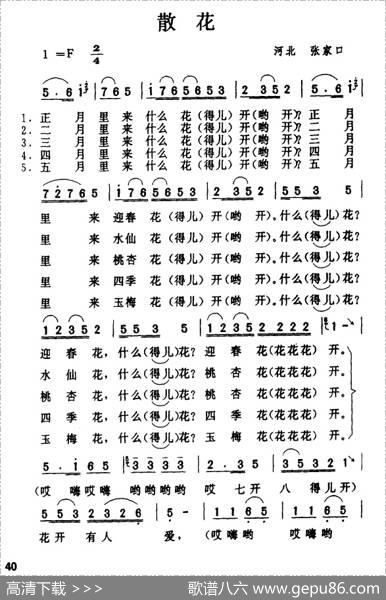 散花
1=F 2/4 河北 张家口
5·6 i 3 | 765 | i765 5653 | 2352 | 5·6 i 3 |
1. 正月里来什么花(得儿)开(哟开)? 正月
2. 二月里来什么花(得儿)开(哟开)? 二月
3. 三月里来什么花(得儿)开(哟开)? 三月
4. 四月里来什么花(得儿)开(哟开)? 四月
5. 五月里来什么花(得儿)开(哟开)? 五月
7276 5 | i765 5653 | 2 352 | 55 3 5 |
里来迎春花(得儿)开(哟开)。什么(得儿)花?
里来水仙花(得儿)开(哟开)。什么(得儿)花?
里来桃杏花(得儿)开(哟开)。什么(得儿)花?
里来四季花(得儿)开(哟开)。什么(得儿)花?
里来玉梅花(得儿)开(哟开)。什么(得儿)花?
1 2352 | 55 3 5 | 1 2352 | 2 222 | 1 - |
迎春花,什么(得儿)花? 迎春花(花花花)开。
水仙花,什么(得儿)花? 桃杏花(花花花)开。
桃杏花,什么(得儿)花? 桃杏花(花花花)开。
四季花,什么(得儿)花? 四季花(花花花)开。
玉梅花,什么(得儿)花? 玉梅花(花花花)开。
5·i 65 | 3 3 3 3 | 5 5·2 | 3 5 32 1 |
(哎嗨哎嗨 哟哟哟哟 哎七开 八得儿开
553 5 | 2 32 6 | 5 - | 5·1 65 | 5·1 65 |
花开有人爱,(哎嗨哟 哎嗨哟
40
高清下载 >>>
歌谱八六 www.gepu86.com